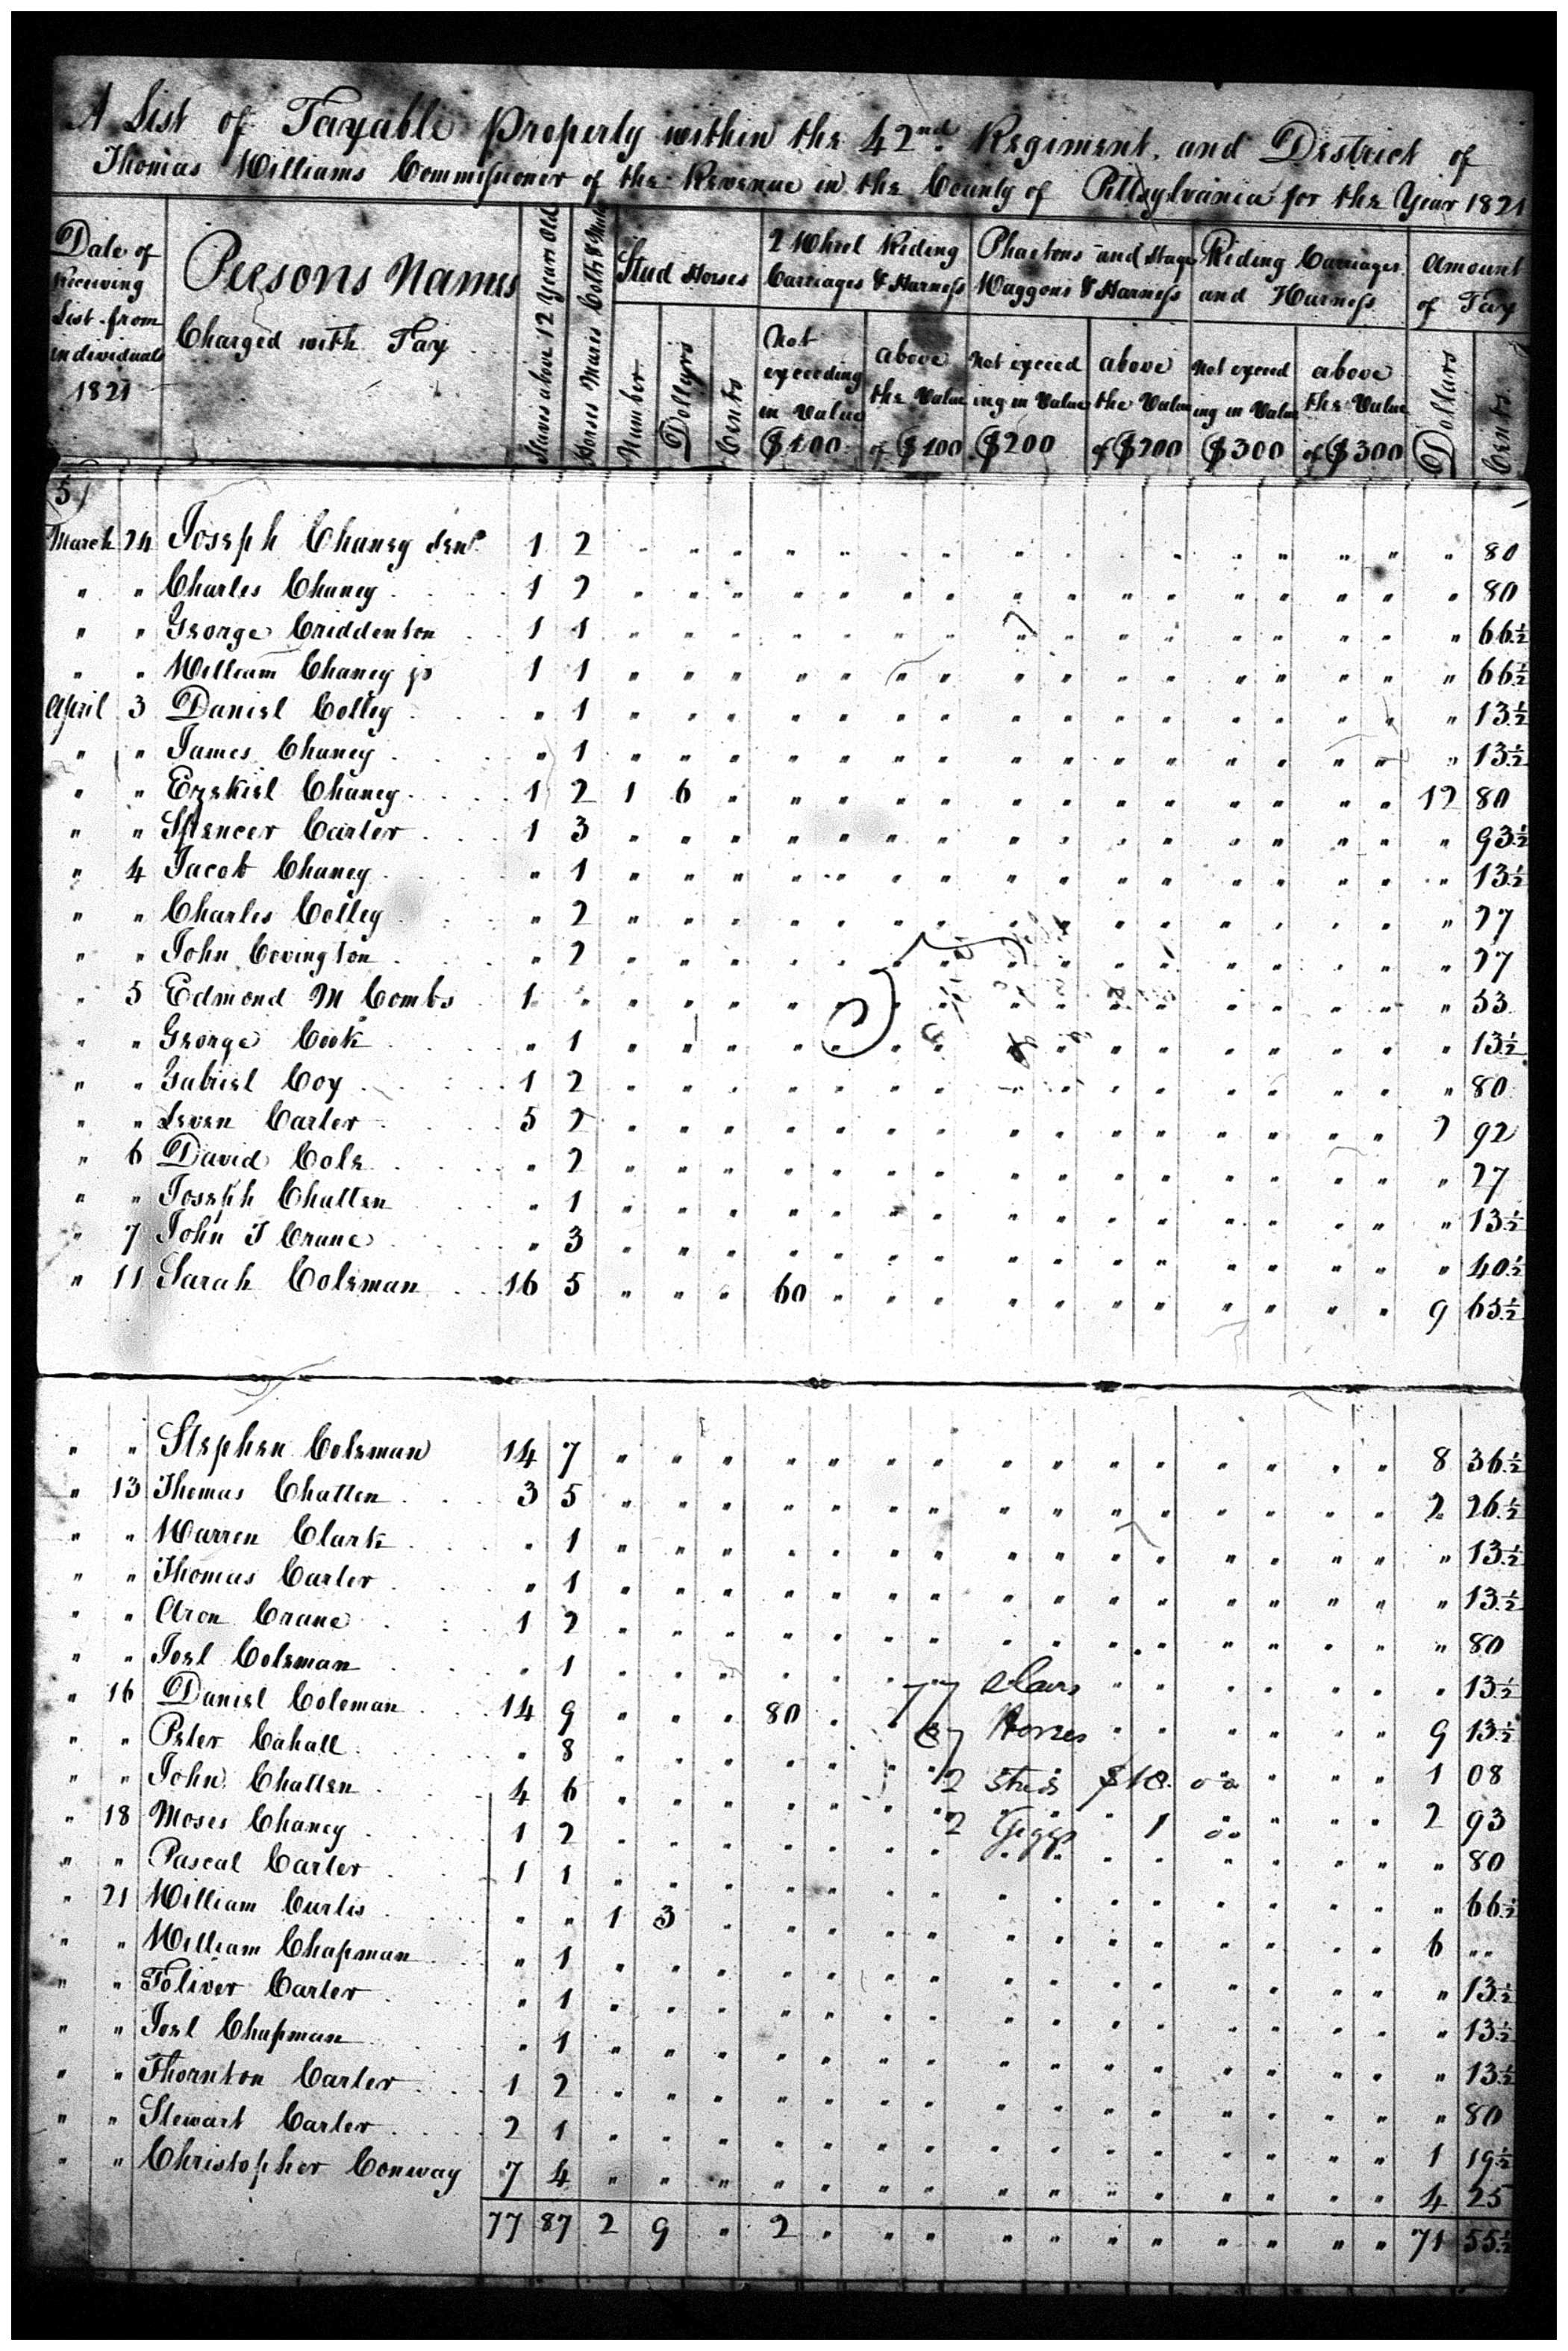 A List of Taxable Property within the 42nd Regiment, and District of
Thomas Williams Commissioner of the Revenue in the County of Pittsylvania for the Year 1821
Date of Receiving List from individuals 1821
Persons Names Charged with Tax
Slaves above 12 Years Old
Horses Mares Colts & Mules
Stud Horses
Number
Dollars
Cents
2 Wheel Riding Carriages & Harness
Not exceeding in value $100
above the Value of $100
Phaetons and Stage Waggons & Harness
Not exceeding in Value $200
above the Value of $200
Riding Carriages and Harness
Not exceeding in Value $300
above the Value of $300
Amount of Tax
Dollars
Cents
5
March 24 Joseph Chaney senr 1 2 " 80
" " Charles Chaney 1 2 " 80
" " George Criddenton 1 1 " 66½
" " William Chaney jr 1 1 " 66½
April 3 Daniel Colley " 1 " 13½
" " James Chaney " 1 " 13½
" " Ezekiel Chaney 1 2 1 6 " 12 80
" " Spencer Carter 1 3 " 93½
" 4 Jacob Chaney " 1 " 13½
" " Charles Colley " 2 " 27
" " John Covington " 2 " 27
" 5 Edmond M Combs 1 " " 53
" " George Cook " 1 " 13½
" " Gabriel Coy 1 2 " 80
" " Leven Carter 5 2 2 92
" 6 David Cole " 2 " 27
" " Joseph Chatten " 1 " 13½
" 7 John T Crane " 3 " 40½
" 11 Sarah Coleman 16 5 " " " 60 9 65½
" " Stephen Coleman 14 7 8 36½
" 13 Thomas Chatten 3 5 2 26½
" " Warren Clark " 1 " 13½
" " Thomas Carter " 1 " 13½
" " Aron Crane 1 2 " 80
" " Joel Coleman " 1 " 13½
77 Slaves
" 16 Daniel Coleman 14 9 " " " 80 9 13½
87 Horses
" " Peter Cahall " 8 1 08
2 Studs $18 00
" " John Chatten 4 6 2 93
2 Giggs 1 00
" 18 Moses Chaney 1 2 " 80
" " Pascal Carter 1 1 " 66½
" 21 William Curtis " " 1 3 " 6 "
" " William Chapman " 1 " 13½
" " Toliver Carter " 1 " 13½
" " Joel Chapman " 1 " 13½
" " Thornton Carter 1 2 " 80
" " Stewart Carter 2 1 1 19½
" " Christopher Conway 7 4 4 25
77 87 2 9 " 2 71 55½